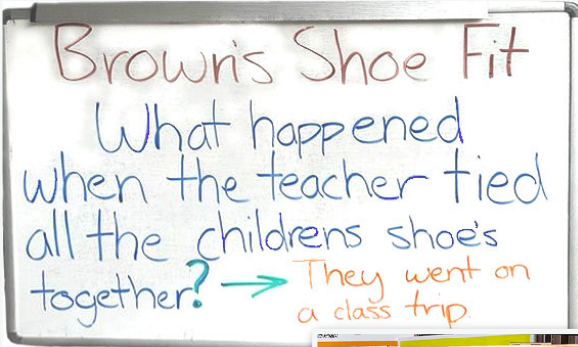 Brown's Shoe Fit
What happened
when the teacher tied
all the childrens shoe's
together? → They went on
a class trip.